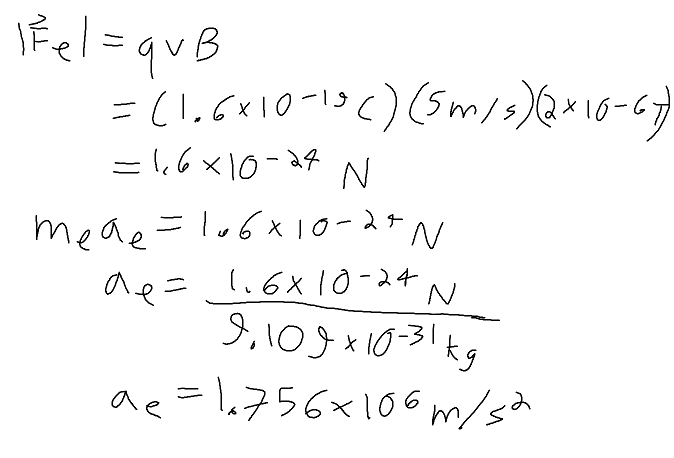 |F⃗e| = qvB
= (1.6×10-19C)(5m/s)(2×10-6T)
= 1.6×10-24 N
meae = 1.6×10-24N
ae = 1.6×10-24 N
9.109×10-31kg
ae = 1.756×106m/s2